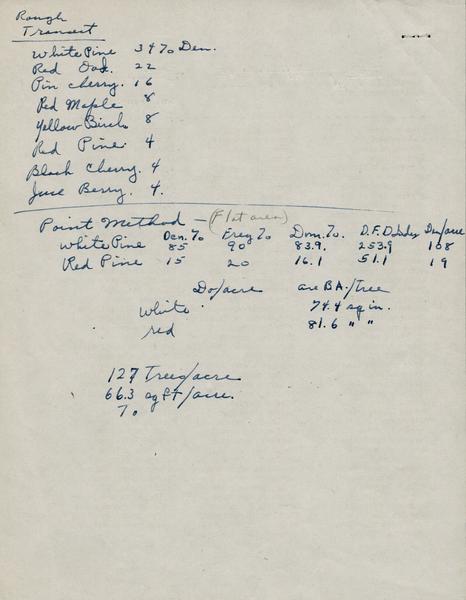 Rough
Transect
White Pine 34 % Den.
Red Oak. 22
Pin cherry. 16
Red Maple 8
Yellow Birch 8
Red Pine 4
Black Cherry. 4
June Berry. 4.
Point Method - (Flat area)
Den. % Freq % Dom. %. D.F.D Index Den/acre
White Pine 85 90 83.9. 258.9 108
Red Pine 15 20 16.1 51.1 19
Do/acre ave BA./tree
White 74.4 sq in.
red 81.6 " "
127 Trees/acre
66.3 sq ft/acre.
70